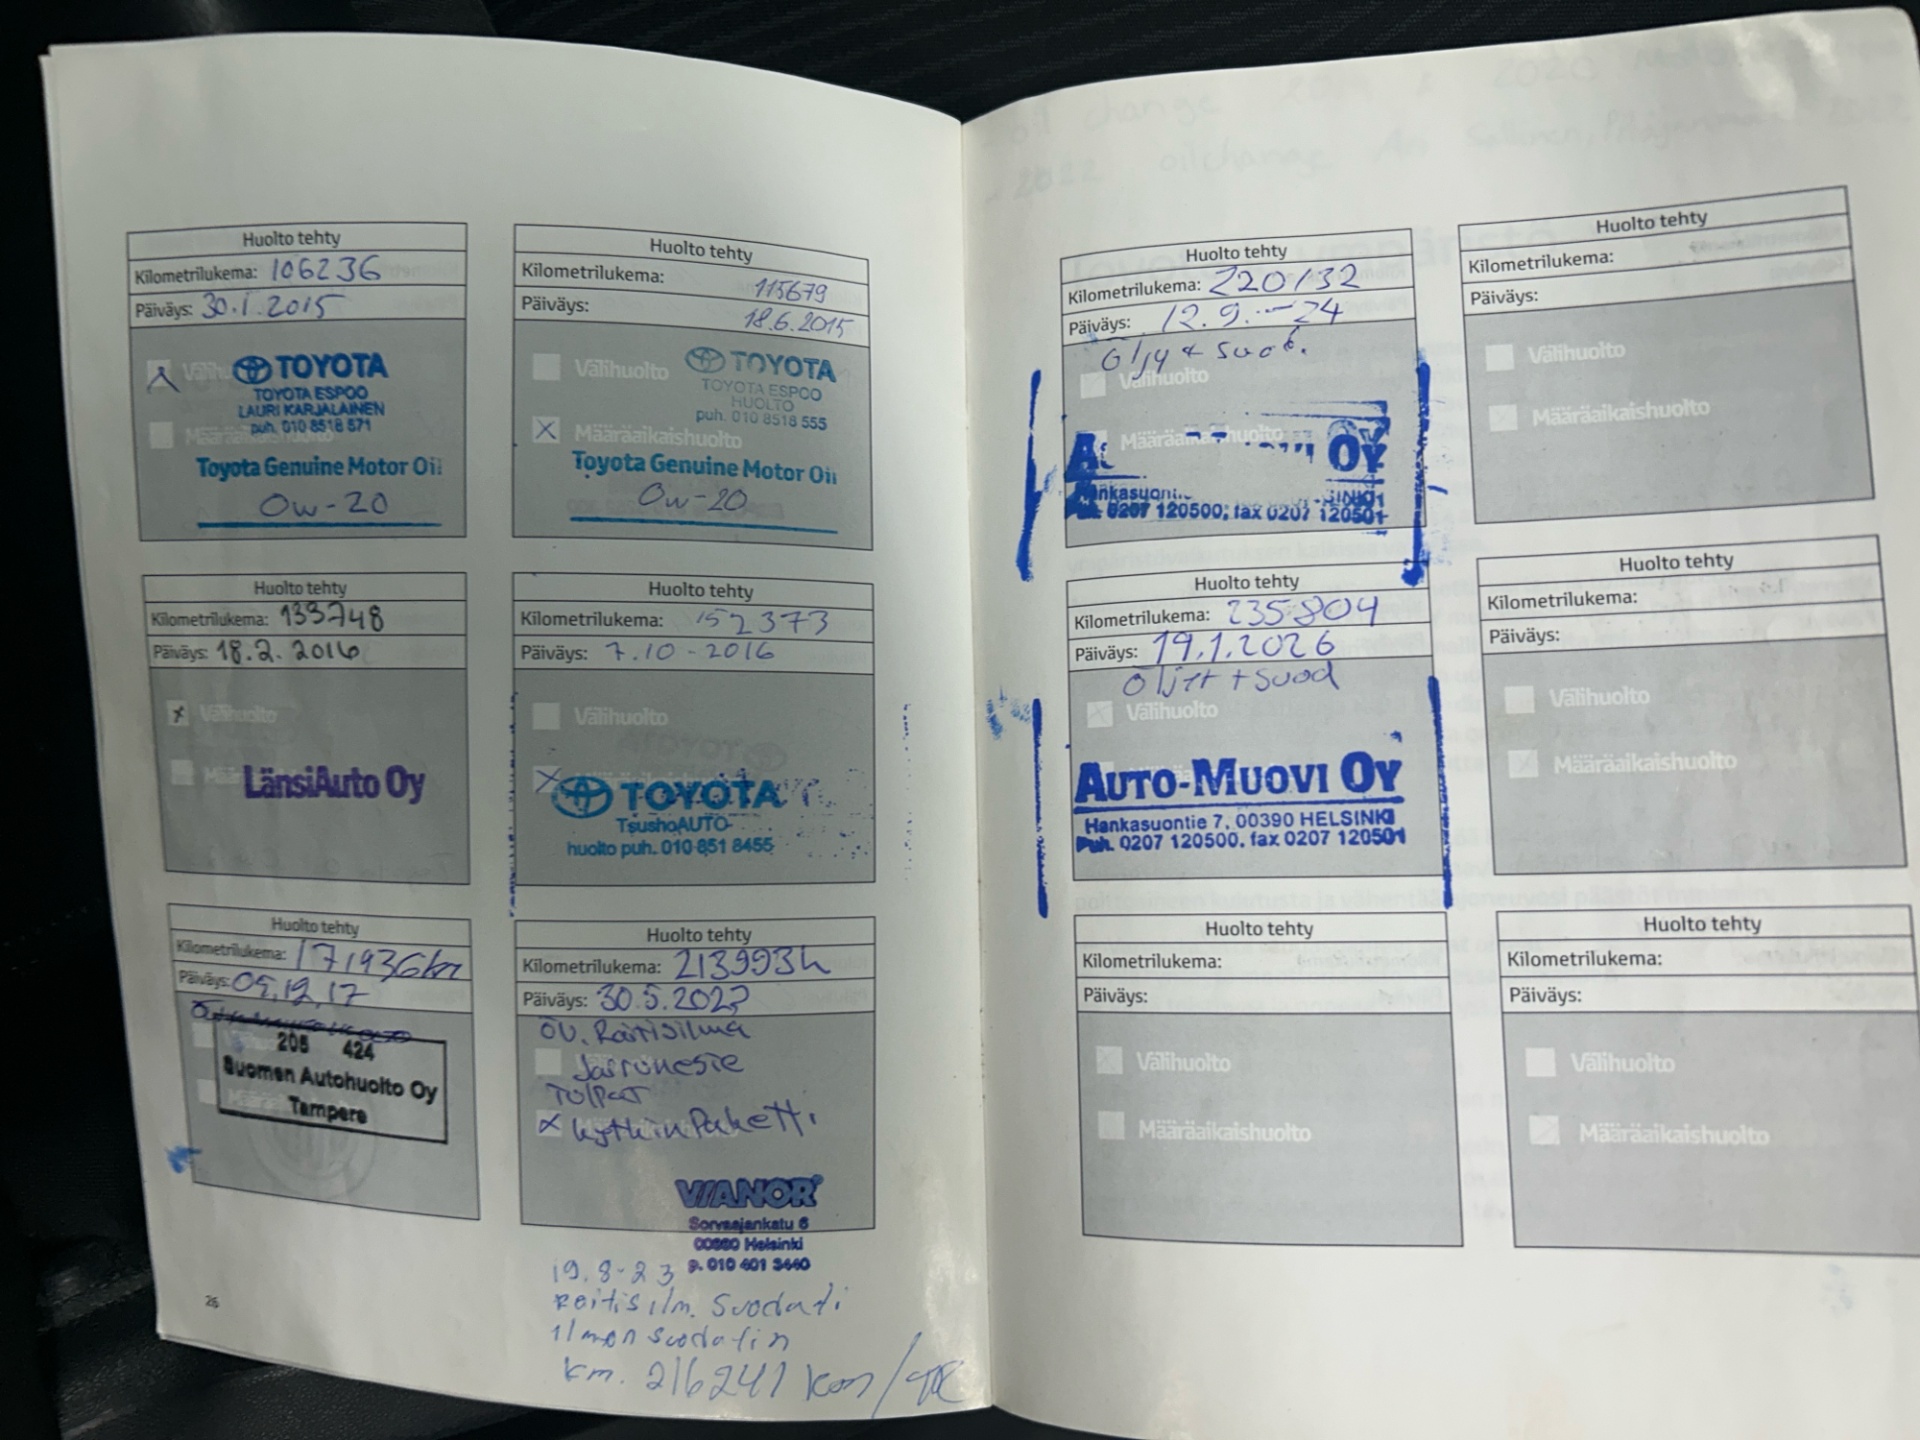 Huolto tehty
Kilometrilukema: 106236
Päiväys: 30.1.2015
Välihuolto
TOYOTA
TOYOTA ESPOO
LAURI KARJALAINEN
puh. 010 8518 571
Määräaikaishuolto
Toyota Genuine Motor Oil
0w-20
Huolto tehty
Kilometrilukema: 115679
Päiväys: 18.6.2015
Välihuolto
TOYOTA
TOYOTA ESPOO
HUOLTO
puh. 010 8518 555
Määräaikaishuolto
Toyota Genuine Motor Oil
0w-20
Huolto tehty
Kilometrilukema: 133748
Päiväys: 18.2.2016
Välihuolto
LänsiAuto Oy
Huolto tehty
Kilometrilukema: 152373
Päiväys: 7.10-2016
Välihuolto
TOYOTA
TsushoAUTO
huolto puh. 010-851 8455
Huolto tehty
Kilometrilukema: 171936km
Päiväys: 05.12.17
205 424
Suomen Autohuolto Oy
Tampere
Huolto tehty
Kilometrilukema: 213993
Päiväys: 30.5.2023
ÖV. Raitisilma
Jarruneste
Tulpat
kytkinpaketti
VIANOR
Sorvaajankatu 6
Helsinki
p. 010 401 3440
19.8-23
Reitisilm. Suodati
ilman suodatin
km. 216241 km
26
oil change 2020
- 2022 oilchange
Huolto tehty
Kilometrilukema: 220132
Päiväys: 12.9.-24
Öljy + suod.
Välihuolto
Määräaikaishuolto
OY
0207 120500, fax 0207 120501
Huolto tehty
Kilometrilukema: 235804
Päiväys: 19.1.2026
Öljyt + suod
Välihuolto
AUTO-MUOVI OY
Hankasuontie 7, 00390 HELSINKI
Puh. 0207 120500. fax 0207 120501
Huolto tehty
Kilometrilukema:
Päiväys:
Välihuolto
Määräaikaishuolto
Huolto tehty
Kilometrilukema:
Päiväys:
Välihuolto
Määräaikaishuolto
Huolto tehty
Kilometrilukema:
Päiväys:
Välihuolto
Määräaikaishuolto
Huolto tehty
Kilometrilukema:
Päiväys:
Välihuolto
Määräaikaishuolto